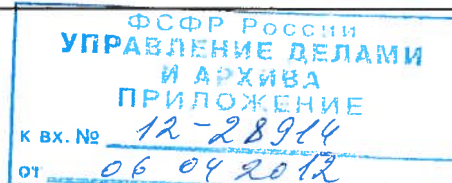 ФСФР России
УПРАВЛЕНИЕ ДЕЛАМИ
И АРХИВА
ПРИЛОЖЕНИЕ
К ВХ. № 12-28914
от 06 04 2012